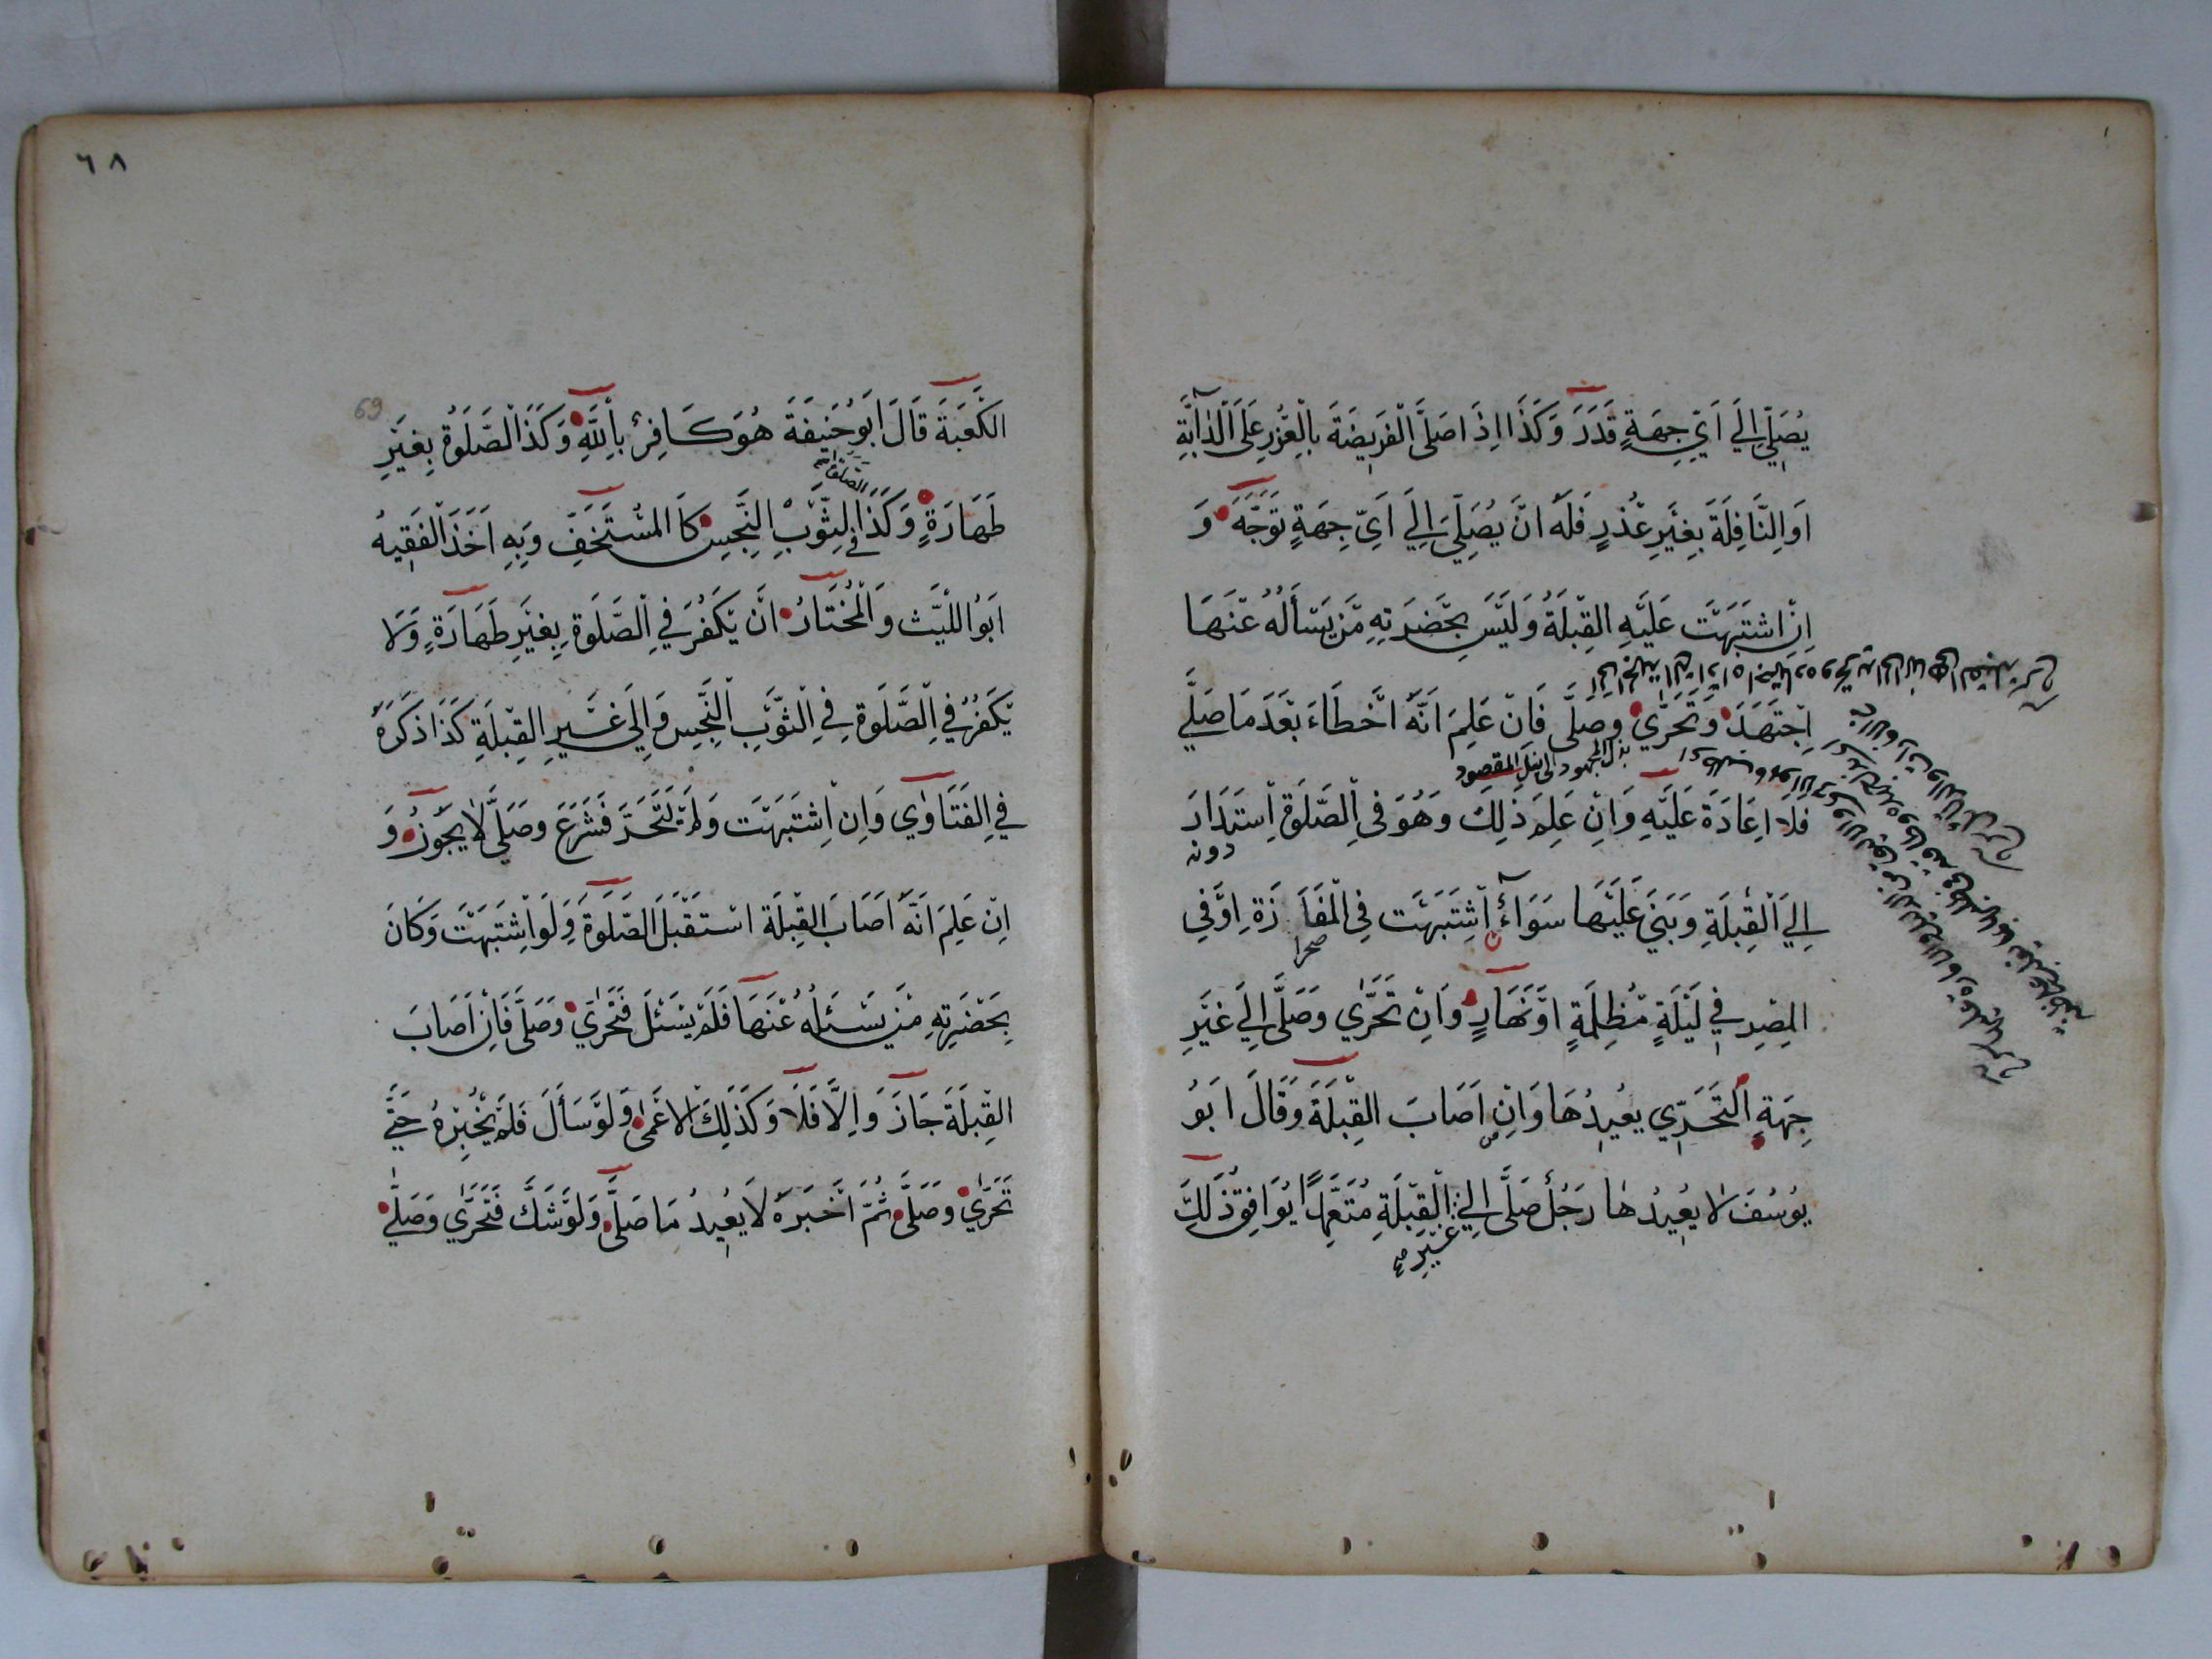 يُصَلِّي اِلَي اَيِّ جِهَةٍ قَدَرَ وَكَذَا اِذَا صَلَّى الْفَرِيضَةَ بِالْعُذْرِ عَلَى الدَّابَّةِ
اَوِ النَّافِلَةَ بِغَيْرِ عُذْرٍ فَلَهُ اَنْ يُصَلِّيَ اِلَي اَيِّ جِهَةٍ تَوَجَّهَ وَ
اِنِ اشْتَبَهَتْ عَلَيْهِ الْقِبْلَةُ وَلَيْسَ بِحَضْرَتِهِ مَنْ يَسْأَلُهُ عَنْهَا
اِجْتَهَدَ وَتَحَرَّي وَصَلَّى فَاِنْ عَلِمَ اَنَّهُ اَخْطَاءَ بَعْدَمَا صَلَّي
بذل المجهود الى نيل المقصود
فَلَا اِعَادَةَ عَلَيْهِ وَاِنْ عَلِمَ ذٰلِكَ وَهُوَ فِي الصَّلٰوةِ اِسْتَدَارَ
دونه
اِلَي الْقِبْلَةِ وَبَنَي عَلَيْهَا سَوَآءٌ اشْتَبَهَتْ فِي الْمَفَازَةِ اَوْ فِي
صحرا
الْمِصْرِ فِي لَيْلَةٍ مُظْلِمَةٍ اَوْ نَهَارٍ وَاِنْ تَحَرَّي وَصَلَّى اِلَي غَيْرِ
جِهَةِ التَّحَرِّي يُعِيدُهَا وَاِنْ اَصَابَ الْقِبْلَةَ وَقَالَ اَبُو
يُوسُفَ لَا يُعِيدُهَا رَجُلٌ صَلَّى اِلَي الْقِبْلَةِ مُتَعَمِّدًا يُوَافِقُ ذٰلِكَ
غَيْرِ
٦٨
69
الْكَعْبَةَ قَالَ اَبُو حَنِيفَةَ هُوَ كَافِرٌ بِاللّٰهِ وَكَذَا الصَّلٰوةُ بِغَيْرِ
الصلوة
طَهَارَةٍ وَكَذَا فِي الثَّوْبِ النَّجِسِ كَالْمُسْتَخِفِّ وَبِهِ اَخَذَ الْفَقِيهُ
اَبُو اللَّيْثِ وَالْمُخْتَارُ اَنْ يَكْفُرَ فِي الصَّلٰوةِ بِغَيْرِ طَهَارَةٍ وَلَا
يَكْفُرُ فِي الصَّلٰوةِ فِي الثَّوْبِ النَّجِسِ وَاِلَي غَيْرِ الْقِبْلَةِ كَذَا ذَكَرَهُ
فِي الْفَتَاوٰي وَاِنْ اِشْتَبَهَتْ وَلَمْ يَتَحَرَّ فَشَرَعَ وَصَلَّي لَا يَجُوزُ وَ
اِنْ عَلِمَ اَنَّهُ اَصَابَ الْقِبْلَةَ اسْتَقْبَلَ الصَّلٰوةَ وَلَوِ اشْتَبَهَتْ وَكَانَ
بِحَضْرَتِهِ مَنْ يَسْئَلُهُ عَنْهَا فَلَمْ يَسْئَلْ فَتَحَرّٰي وَصَلَّى فَاِنْ اَصَابَ
الْقِبْلَةَ جَازَ وَاِلَّا فَلَا وَكَذٰلِكَ الْاَعْمٰى وَلَوْ سَأَلَ فَلَمْ يُخْبِرْهُ حَتّٰي
تَحَرّٰي وَصَلَّى ثُمَّ اَخْبَرَهُ لَا يُعِيدُ مَا صَلَّى وَلَوْ شَكَّ فَتَحَرّٰي وَصَلَّى